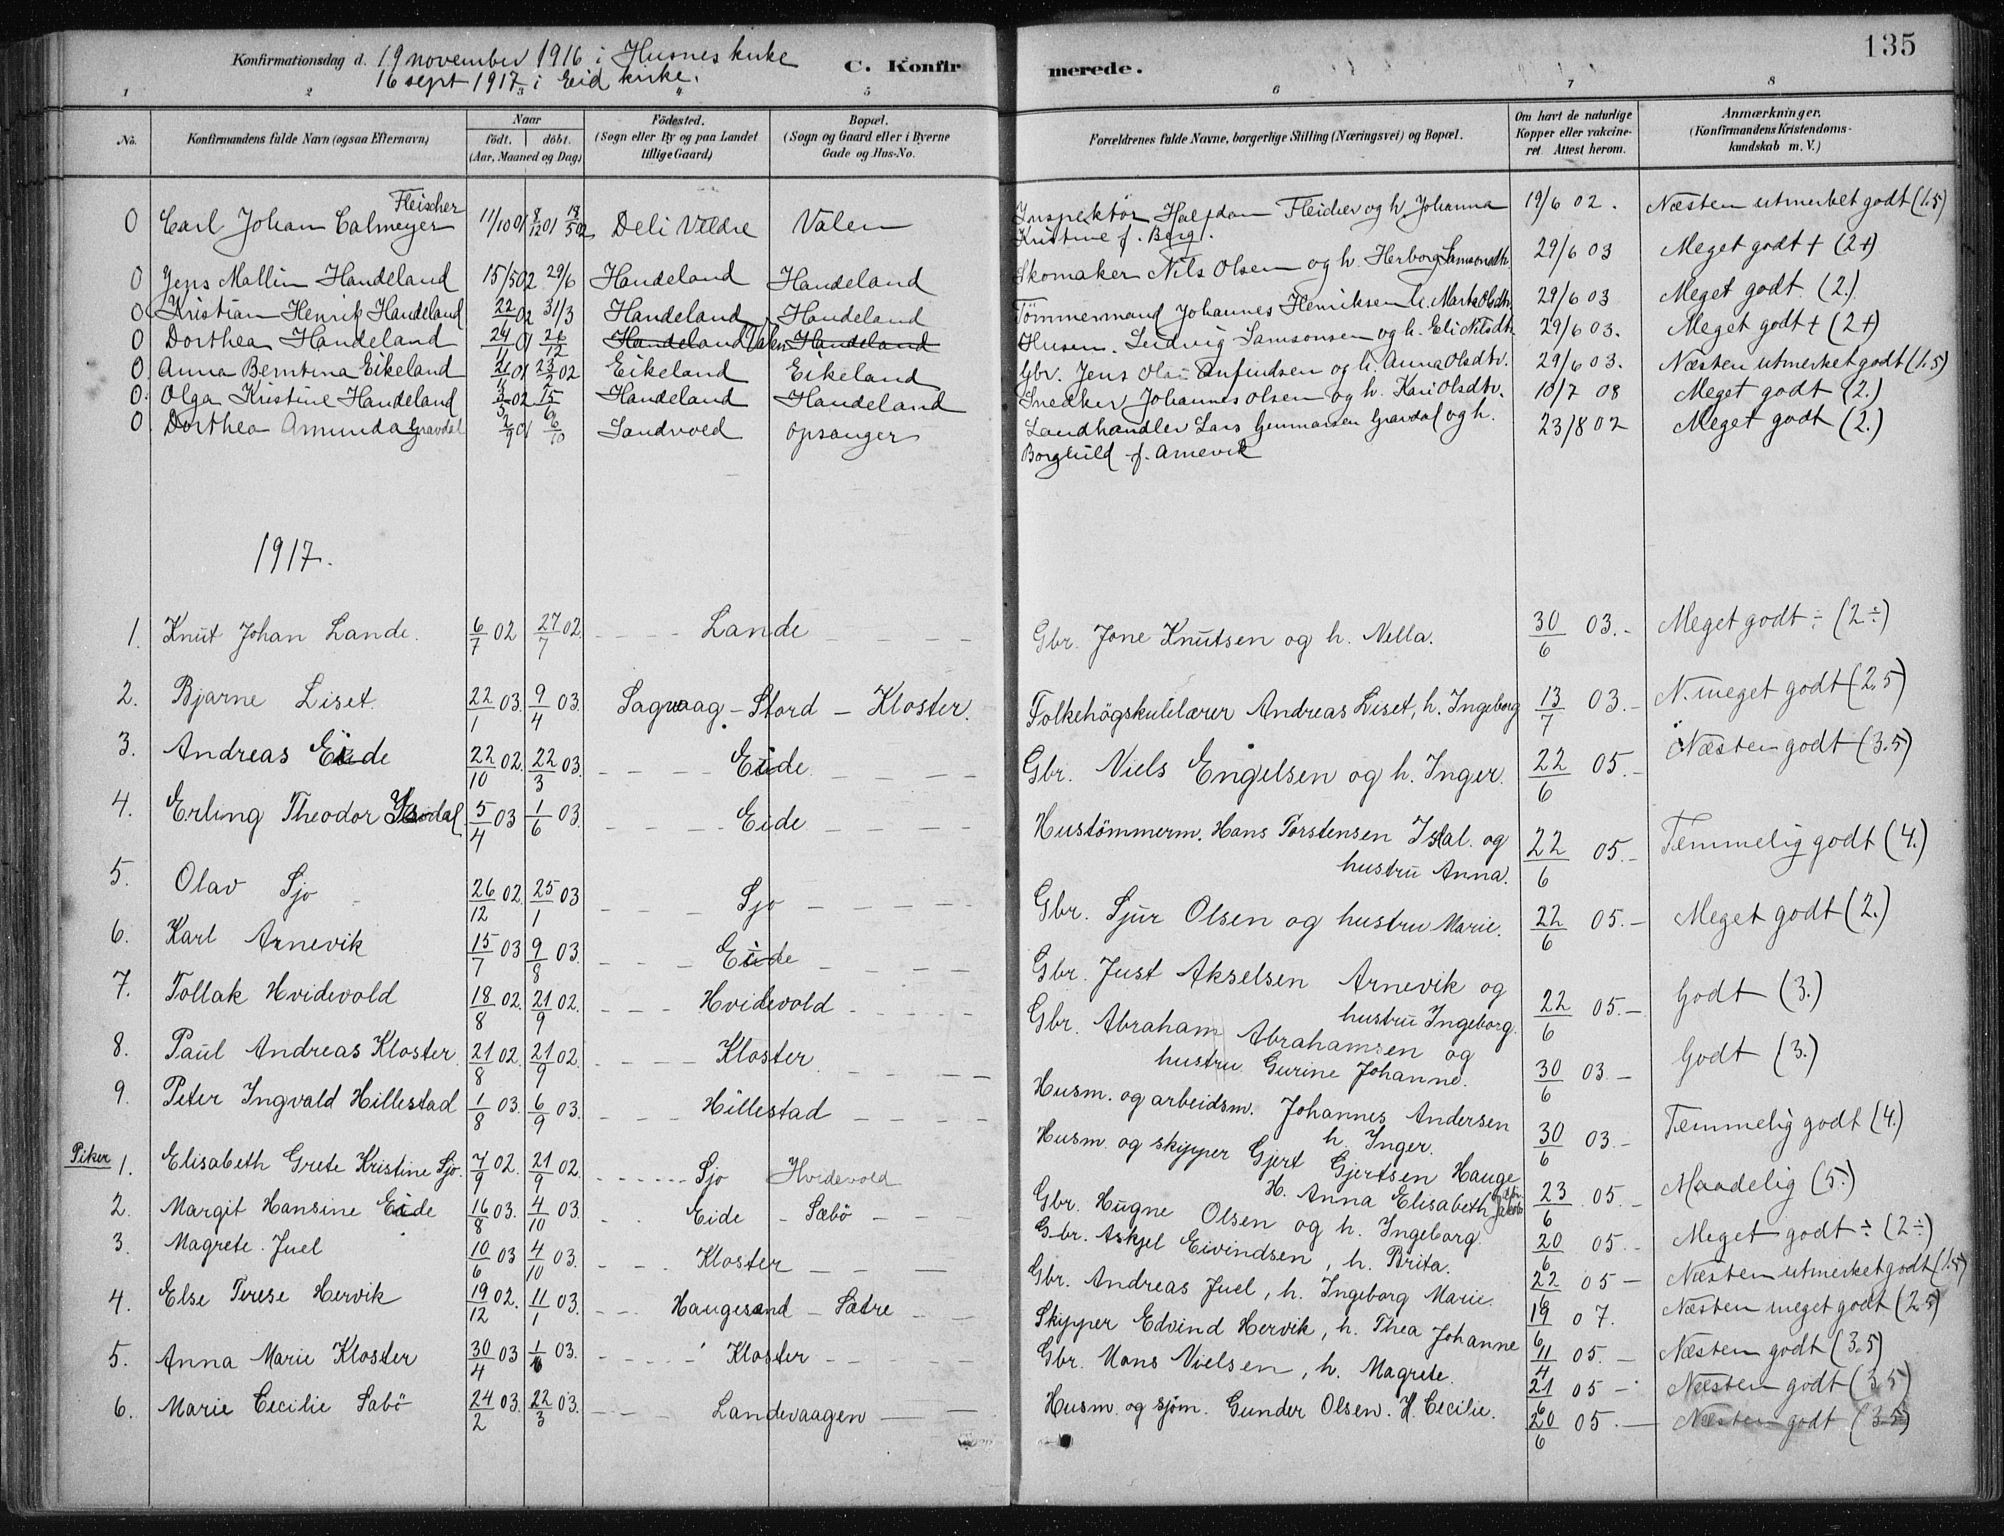 135
Konfirmationsdag d. 19 november 1916 i Husnes kirke
16 sept 1917 i Eid kirke.
C. Konfirmerede.
1 2 3 4 5 6 7 8
No. Konfirmandens fulde Navn (ogsaa Efternavn) Naar født. døbt. (Aar, Maaned og Dag) Fødested. (Sogn eller By og paa Landet tillige Gaard) Bopæl. (Sogn og Gaard eller i Byerne Gade og Hus-No. Forældrenes fulde Navne, borgerlige Stilling (Næringsvei) og Bopæl. Om havt de naturlige Kopper eller vakcineret. Attest herom. Anmærkninger. (Konfirmandens Kristendomskundskab m. V.)
0 Carl Johan Calmeyer Fleischer 11/10 01 8/12 01 18/5 02 Deli Valen Inspektør Halfdan Fleicher og h. Johanna Kristine f. Berg. 19/6 02. Næsten utmerket godt (1.5)
0 Jens Mallin Handeland 15/5 02 29/6 Handeland Handeland Skomaker Nils Olsen og h. Herborg Samsonsdtr. 29/6 03 Meget godt + (2+)
0 Kristian Henrik Handeland 22/ 02 31/3 Handeland Handeland Tömmermand Johannes Henriksen h. Marta Olsdtr. 29/6 03 Meget godt (2.)
0 Dorthea Handeland 24/11 01 26/12 Handeland Valen Handeland Husm. Ludvig Samsonsen og h. Eli Nilsdt. 29/6 03. Meget godt + (2+)
0. Anna Berntina Eikeland 01 23/2 02 Eikeland Eikeland Gbr. Jens Olai Anfindsen og h. Anna Olsdtr. 29/6 03. Næsten utmerket godt (1.5)
0. Olga Kristine Handeland 3/5 02 15/6 Handeland Handeland Snedker Johannes Olsen og h. Kari Olsdtr. 10/7 08 Meget godt (2.)
0. Dorthea Amunda Gravdal 2/9 01 6/10 Sandvoed Opsanger Landhandler Lars Gunnarsen Gravdal og h. Borghild f. Arnevik 23/8 02 Meget godt (2.)
1917.
1. Knut Johan Lande. 6/7 02 27/7 02. Lande Gbr. Jone Knutsen og h. Nella. 30/6 03.- Meget godt ÷ (2÷)
2. Bjarne Liset. 22/1 03. 9/4 03. Sagvaag - Stord - Kloster. Folkehögskulelærer Andreas Liset, h. Ingeborg 13/7 03.- N. meget godt (2.5)
3. Andreas Eide 22/10 02. 22/3 03. Eide. Gbr. Niels Engelsen og h. Inger. 22/6 05.- Næsten godt (3.5)
4. Erling Theodor Isdal. 5/4 03 1/6 03. Eide Hustömmerm. Hans Torstensen Isdal og hustru Anna. 22/6 05.- Temmelig godt (4.)
5. Olav Sjo 26/12 02. 25/1 03 Sjo Gbr. Sjur Olsen og hustru Marie. 22/6 05.- Meget godt (2.)
6. Karl Arnevik 15/7 03 9/8 03. Eide Gbr. Just Akselsen Arnevik og hustru Ingeborg. 22/6 05.- Godt (3.)
7. Tollak Hvidevold 18/8 02. 21/9 02. Hvidevold Gbr. Abraham Abrahamsen og hustru Gurine Johanne. 30/6 03.- Godt (3.)
8. Paul Andreas Kloster. 21/8 02. 21/9 02. Kloster. Husm. og arbeidsm. Johannes Andersen h. Inger. 30/6 03.- Temmelig godt (4.)
9. Peter Ingvald Hillestad 1/8 03. 6/9 03. Hillestad Husm. og skipper Gjert Gjertsen Hauge H. Anna Elisabeth 23/6 05.- Maadelig (5.)
Piker 1. Elisabeth Grete Kristine Sjo. 7/9 02. 21/9 02. Sjo Hvidevold Gbr. Hugne Olsen og h. Ingeborg. 20/6 05.- Meget godt ÷ (2÷)
2. Margit Hansine Eide 16/8 03. 4/10 03. Eide - Sæbö Gbr. Askjel Eivindsen, h. Brita. 22/6 05 - Næsten utmerket godt (1.5)
3. Magrete Juel 10/6 03 4/10 03. Kloster Gbr. Andreas Juel, h. Ingeborg Marie. 19/6 07. Næsten meget godt (2.5)
4. Else Terese Hervik 19/12 02. 11/1 03. Haugesund - Sætre Skipper Edvind Hervik, h. Thea Johanne 11/4 05.- Næsten godt (3.5)
5. Anna Marie Kloster 30/4 03 1/6 03. Kloster Gbr. Mons Nielsen, h. Magrete. 21/6 05 - Næsten godt (3.5)
6. Marie Cecilie Sabö 24/2 03. 22/3 03. Landevaagen Husm. og sjöm. Gunder Olsen. H. Cecilie. 20/6 05.- Næsten godt (3.5)